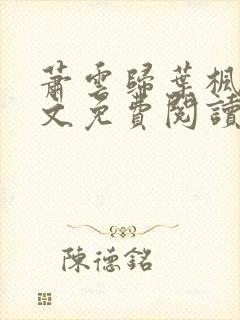 蕭雲歸葉楓
文免費閱讀
陳德銘